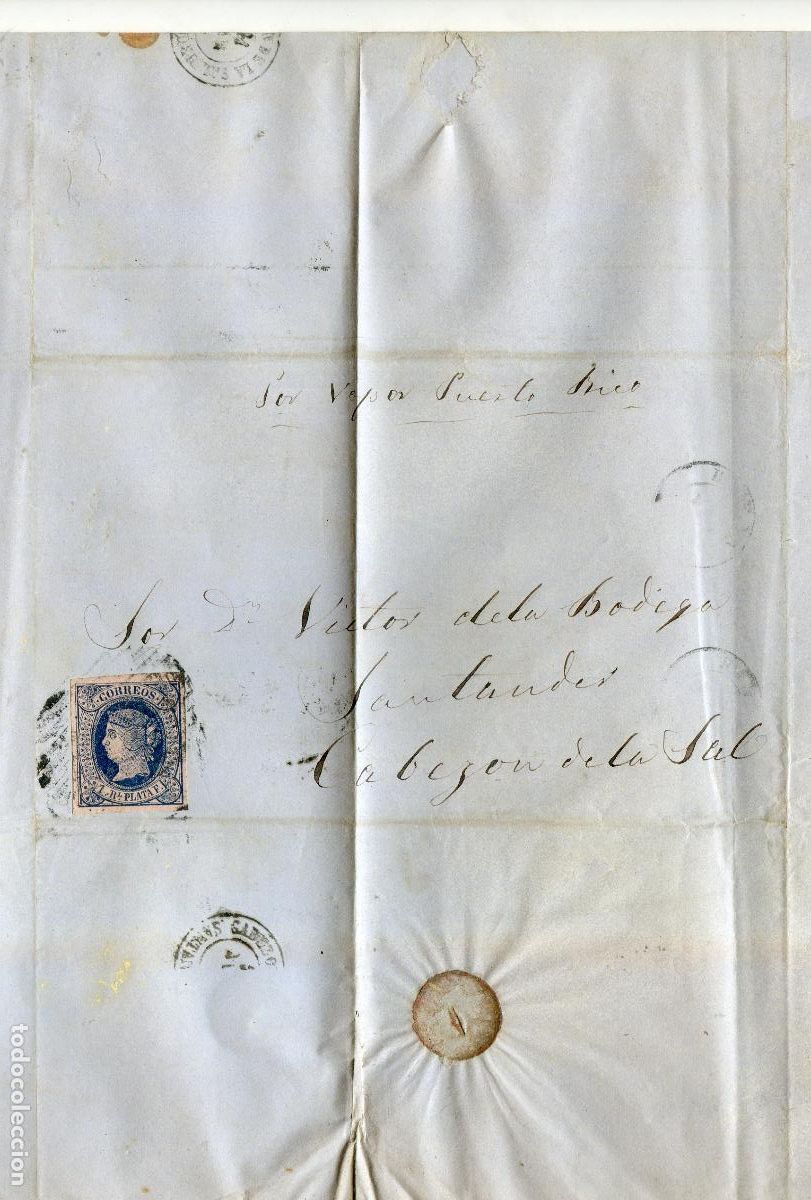 DE LA SAL
Por Vapor Puerto Rico
Sor Dn Victor de la Bodega
Santander
Cabezon de la Sal
CORREOS
1 Rl PLATA F.
CABEZO
todocoleccion